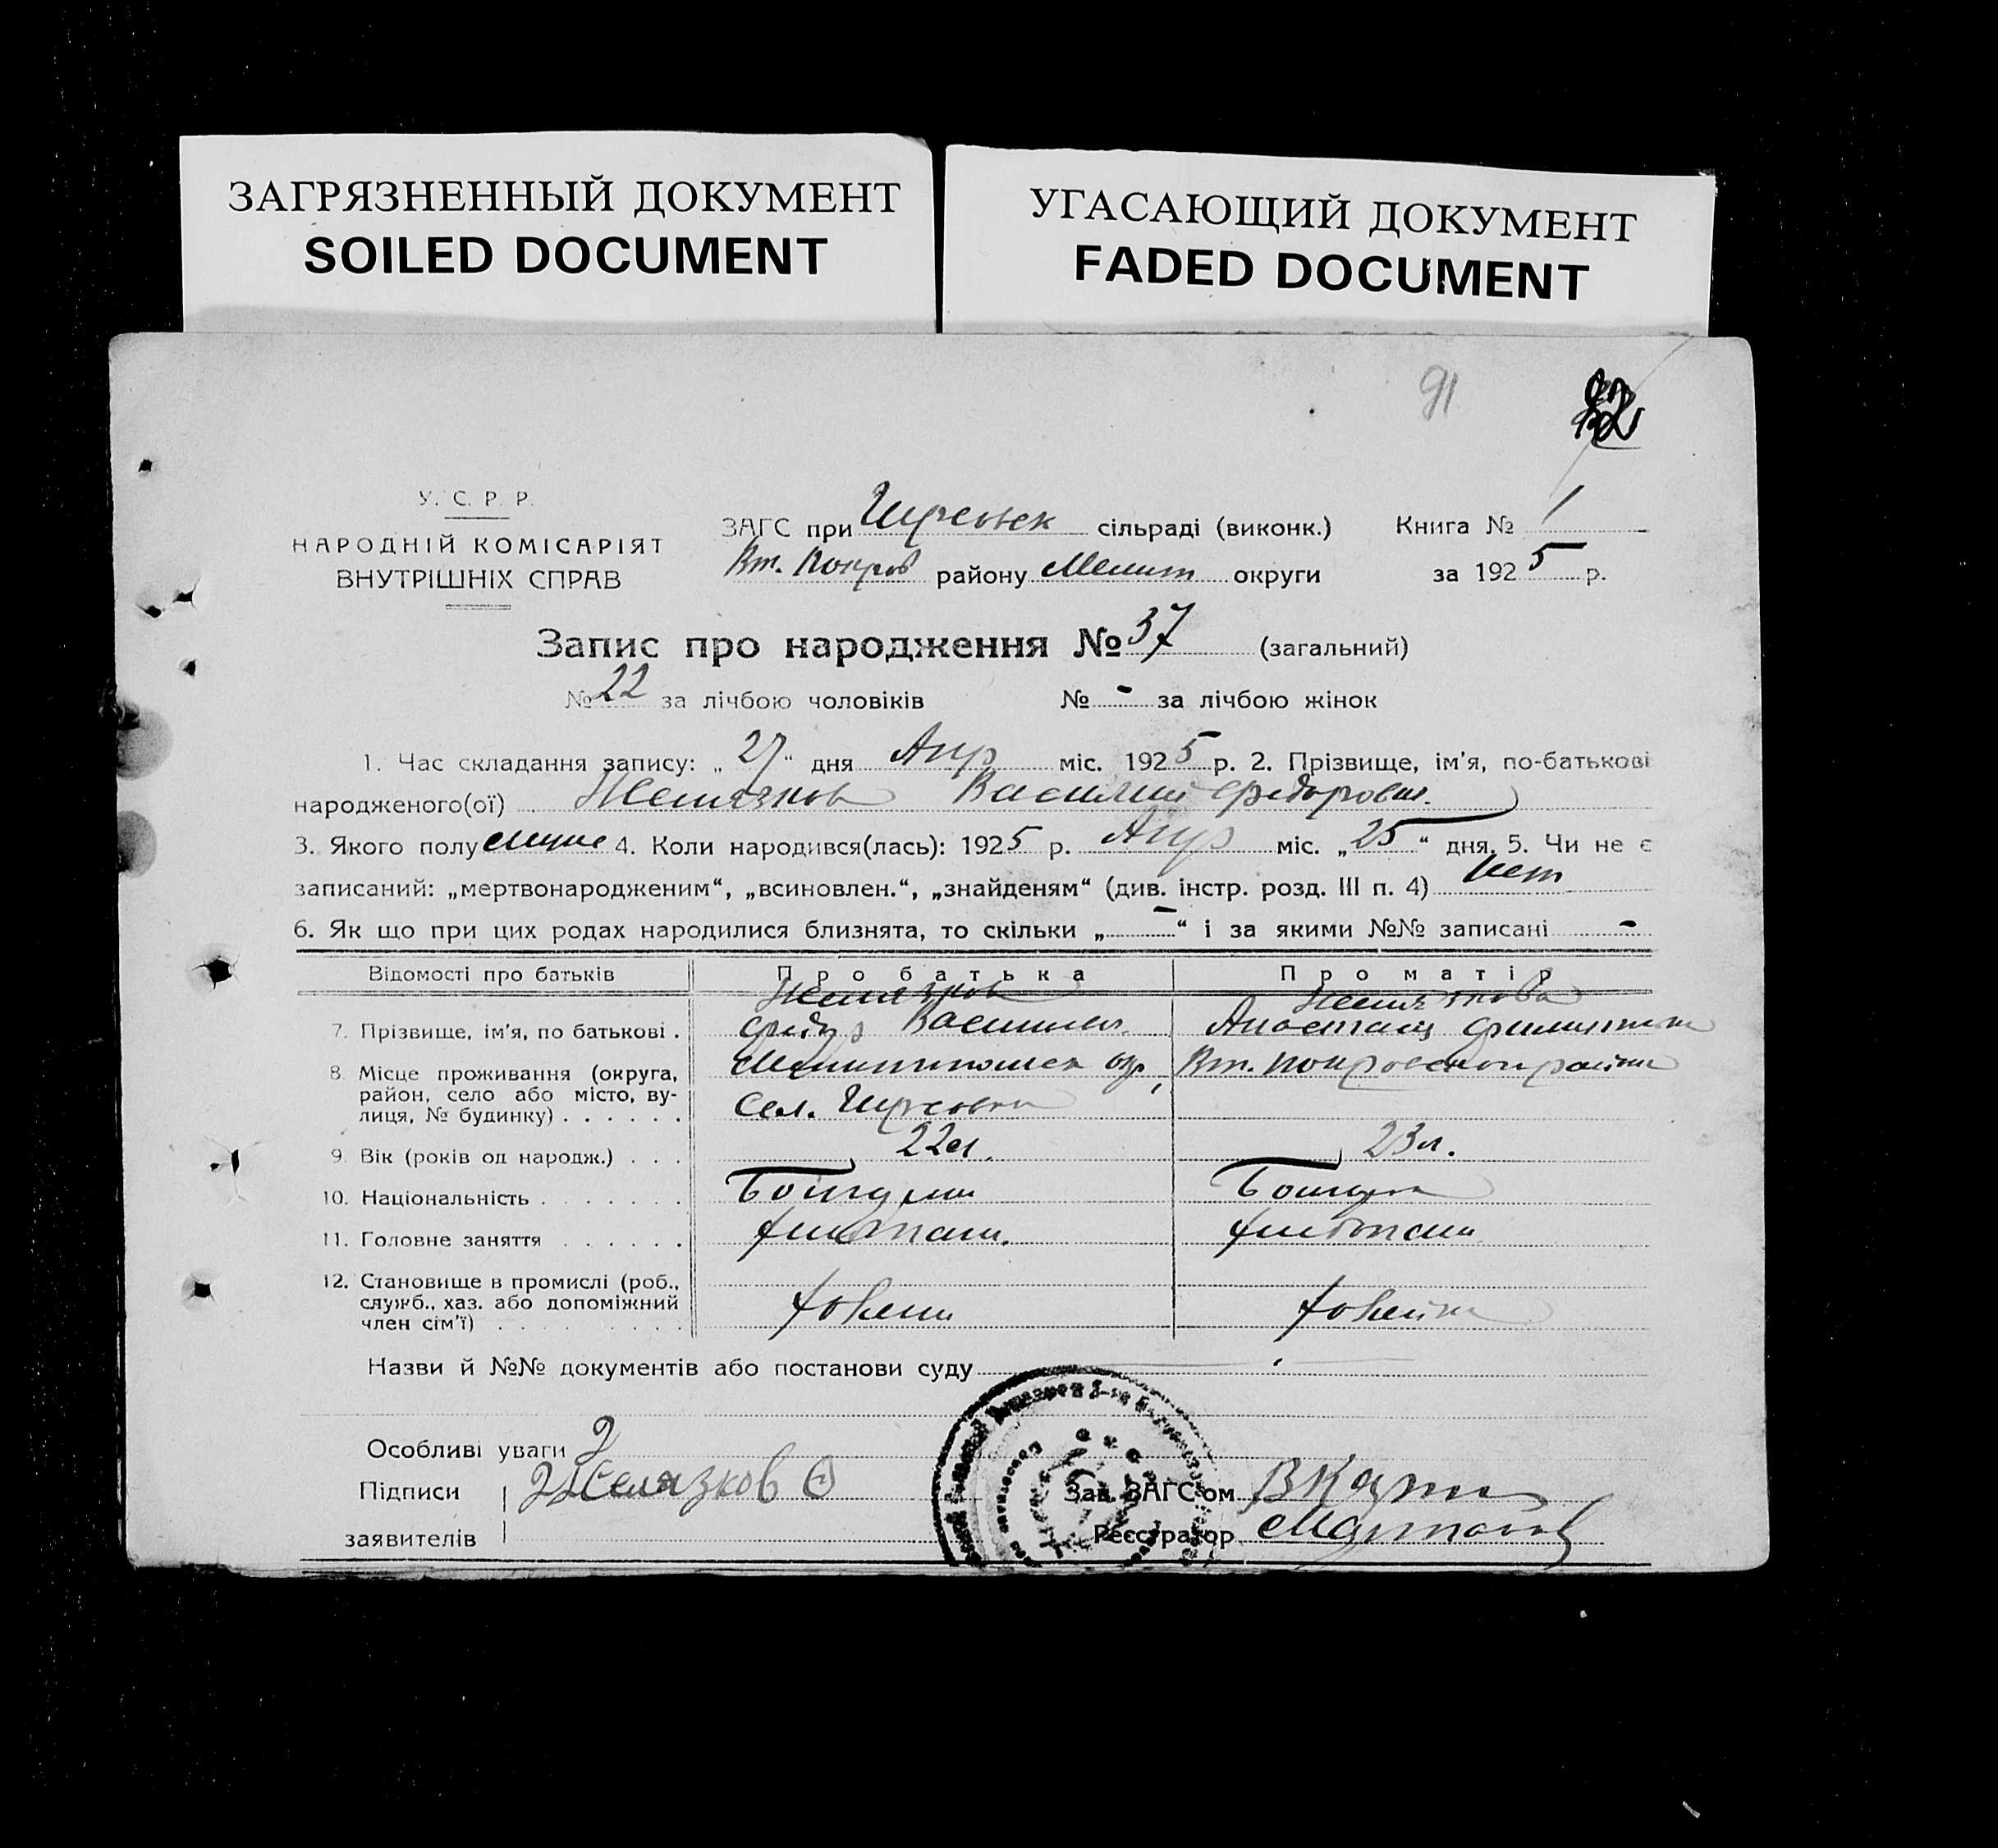 ЗАГРЯЗНЕННЫЙ ДОКУМЕНТ
SOILED DOCUMENT
УГАСАЮЩИЙ ДОКУМЕНТ
FADED DOCUMENT
91
У. С. Р. Р.
НАРОДНІЙ КОМІСАРІЯТ
ВНУТРІШНІХ СПРАВ
ЗАГС при сільраді (виконк.) Книга № 1
Вт. Покров району Мелит округи за 1925 р.
Запис про народження № 37 (загальний)
№ 22 за лічбою чоловіків № - за лічбою жінок
1. Час складання запису: „27“ дня Апр міс. 1925 р. 2. Прізвище, ім'я, по-батькові
народженого(ої) Желязков Василий Федорович
3. Якого полу 4. Коли народився(лась): 1925 р. Апр міс. „25“ дня. 5. Чи не є
записаний: „мертвонародженим“, „всиновлен.“, „знайденям“ (див. інстр. розд. III п. 4) нет
6. Як що при цих родах народилися близнята, то скільки „-“ і за якими №№ записані -
Відомості про батьків Про батька Про матір
Желязков Желязкова
7. Прізвище, ім'я, по батькові . Федор Василиев. Анастаси
8. Місце проживання (округа, район, село або місто, вулиця, № будинку) . . . . . . Мелитопольск окр, Вт. Покровского района
Сел.
9. Вік (років од народж.) . . . 22л. 23л.
10. Національність . . . . . . . Болгарин Болгарка
11. Головне заняття . . . . . . хлебопаш. хлебопаш
12. Становище в промислі (роб., служб., хаз. або допоміжний член сім'ї) . . . . . . . хозяин хозяйка
Назви й №№ документів або постанови суду
Особливі уваги
Підписи Желязков Ѳ Зав. ЗАГС'ом
заявителів Реєстратор